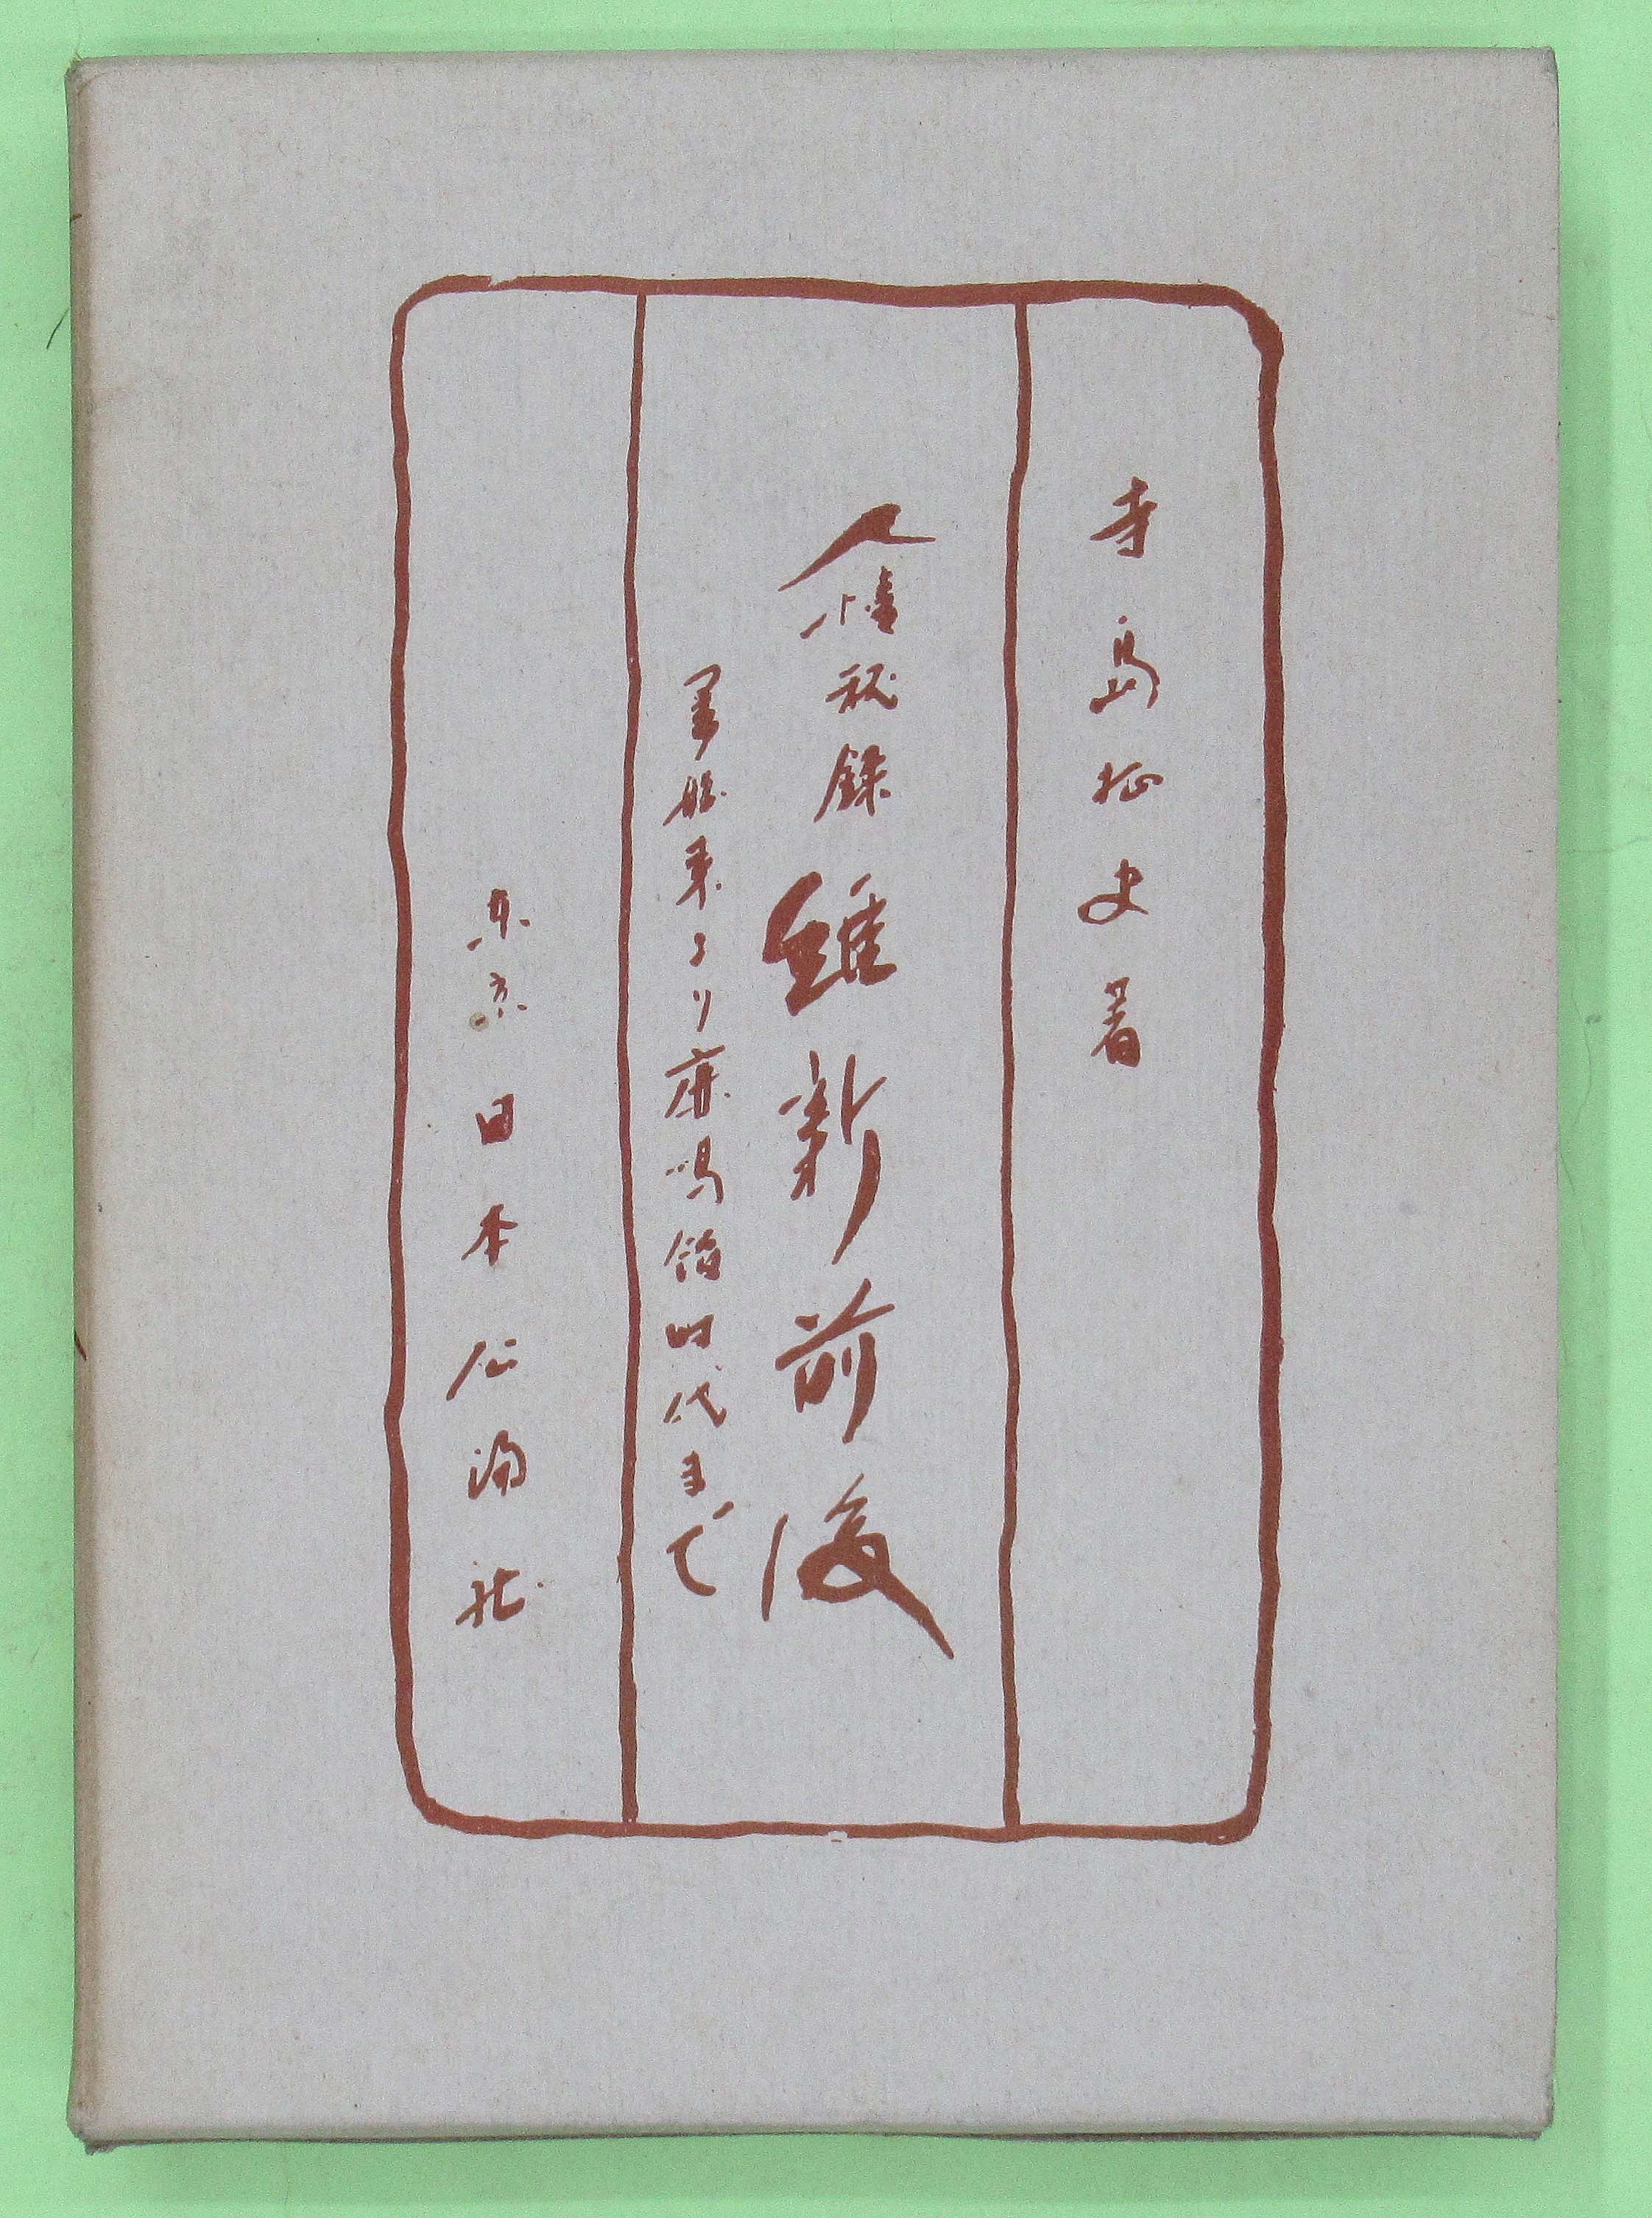 寺島柾史著
人情秘録 維新前後
黒船来より鹿鳴館時代まで
東京 日本公論社